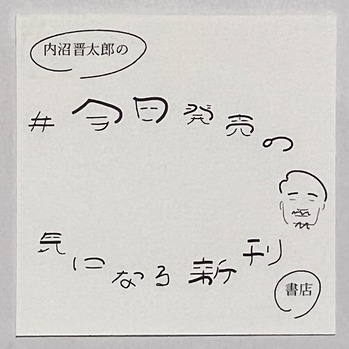 内沼晋太郎の
#今日発売の
気になる新刊
書店